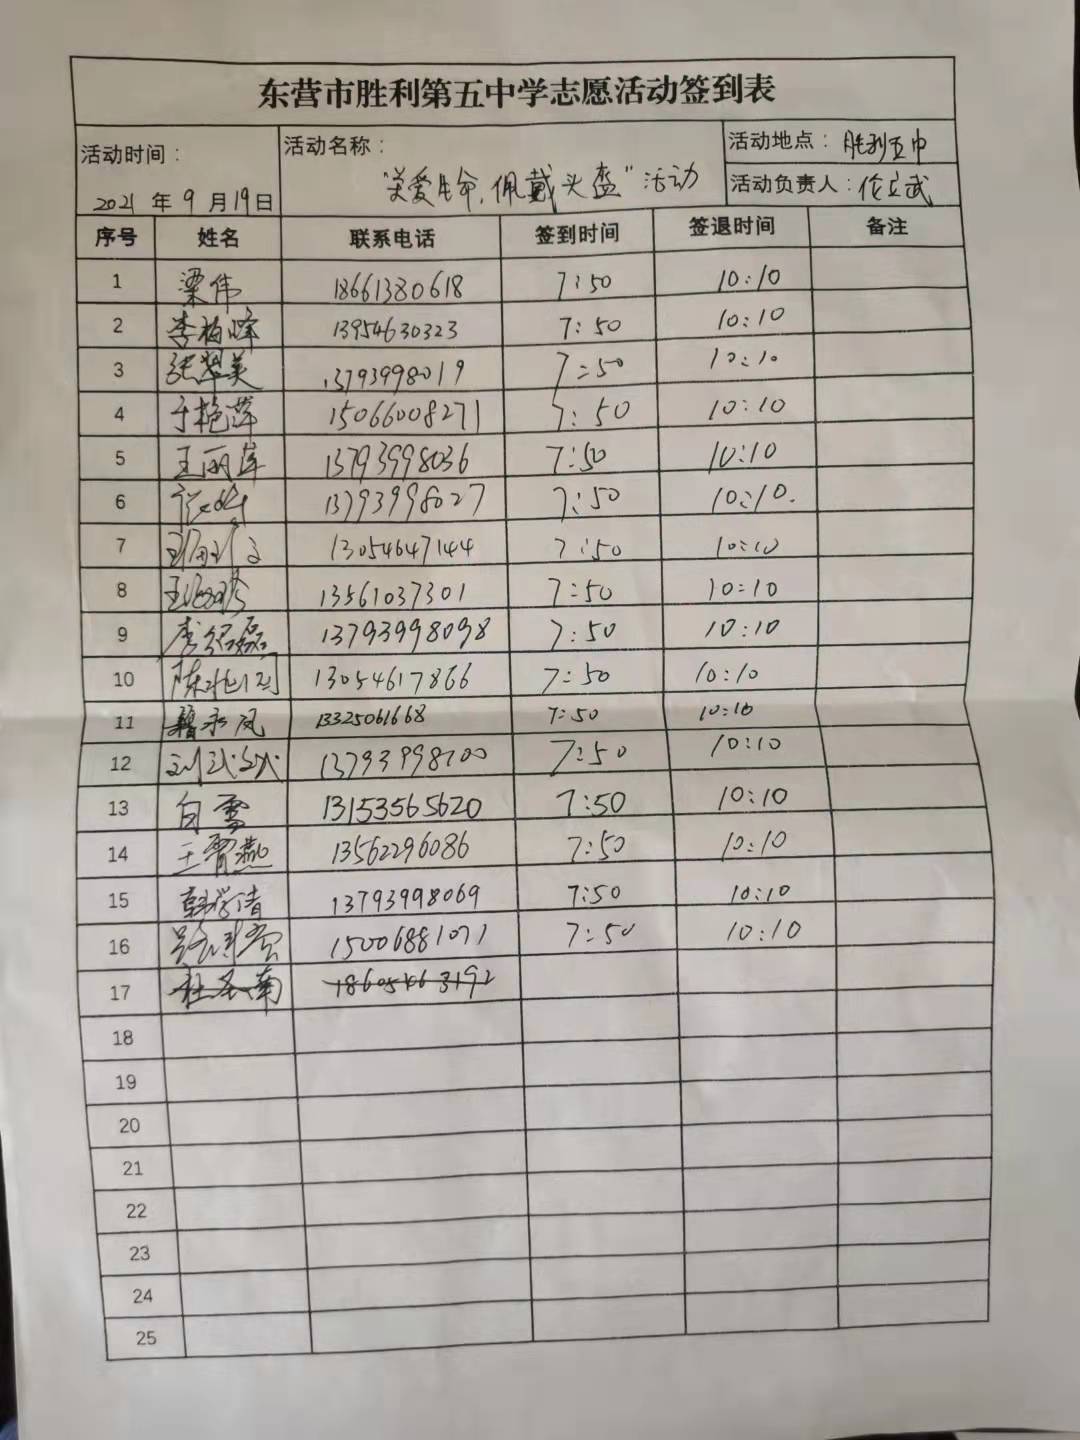 东营市胜利第五中学志愿活动签到表
活动时间： 2021 年 9 月 19 日
活动名称： "关爱生命，佩戴头盔"活动
活动地点： 胜利五中
活动负责人： 位立武
序号 姓名 联系电话 签到时间 签退时间 备注
1 梁伟 18661380618 7:50 10:10
2 李梅峰 13954630323 7:50 10:10
3 张翠美 13793998019 7:50 10:10
4 于艳萍 15066008271 7:50 10:10
5 王丽萍 13793998036 7:50 10:10
6 13793998027 7:50 10:10.
7 13054647144 7:50 10:10
8 13561037301 7:50 10:10
9 李绍磊 13793998098 7:50 10:10
10 13054617866 7:50 10:10
11 永凤 13325061668 7:50 10:10
12 13793998700 7:50 10:10
13 白雪 13153565620 7:50 10:10
14 王霄燕 13562296086 7:50 10:10
15 韩学清 13793998069 7:50 10:10
16 15006881071 7:50 10:10
17 杜圣南 18605463192
18
19
20
21
22
23
24
25